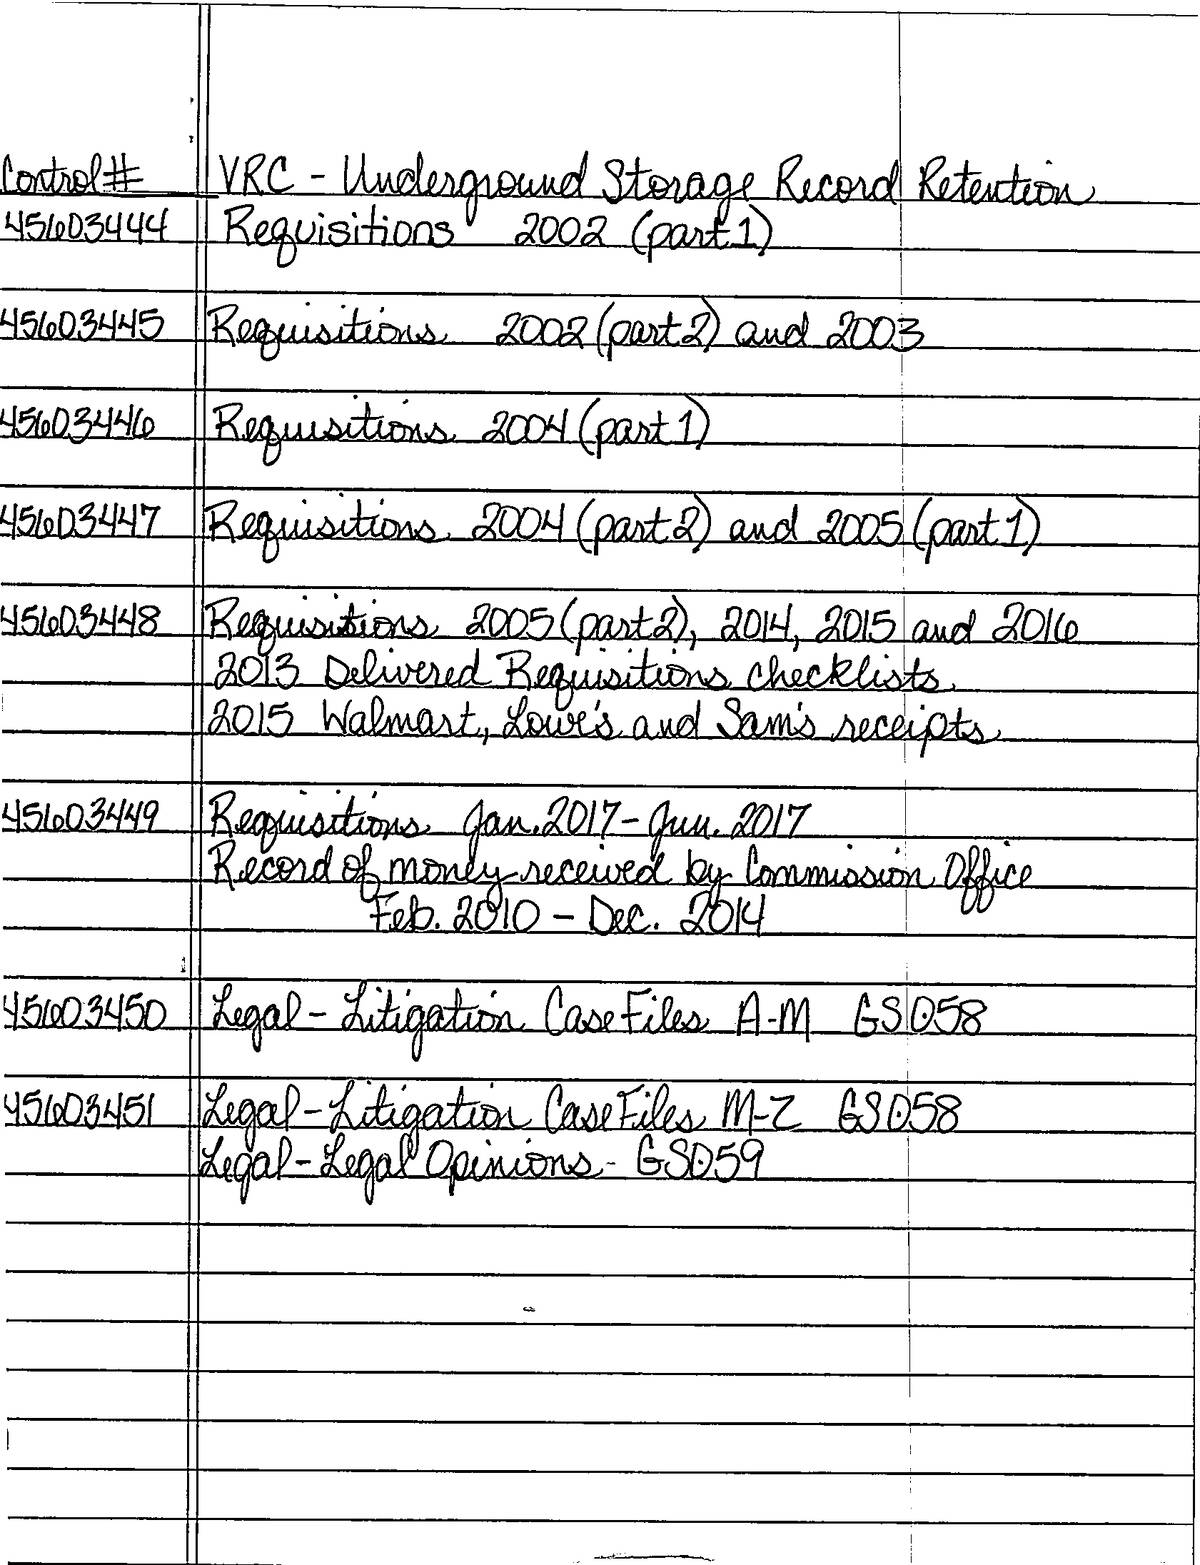 Control# VRC - Underground Storage Record Retention
45603444 Requisitions 2002 (part 1)
45603445 Requisitions 2002 (part 2) and 2003
45603446 Requisitions 2004 (part 1)
45603447 Requisitions 2004 (part 2) and 2005 (part 1)
45603448 Requisitions 2005 (part 2), 2014, 2015 and 2016
2013 Delivered Requisitions checklists
2015 Walmart, Lowe's and Sam's receipts
45603449 Requisitions Jan. 2017 - Jun. 2017
Record of money received by Commission Office
Feb. 2010 - Dec. 2014
45603450 Legal - Litigation Case Files A-M GS058
45603451 Legal - Litigation Case Files M-Z GS058
Legal - Legal Opinions - GS059